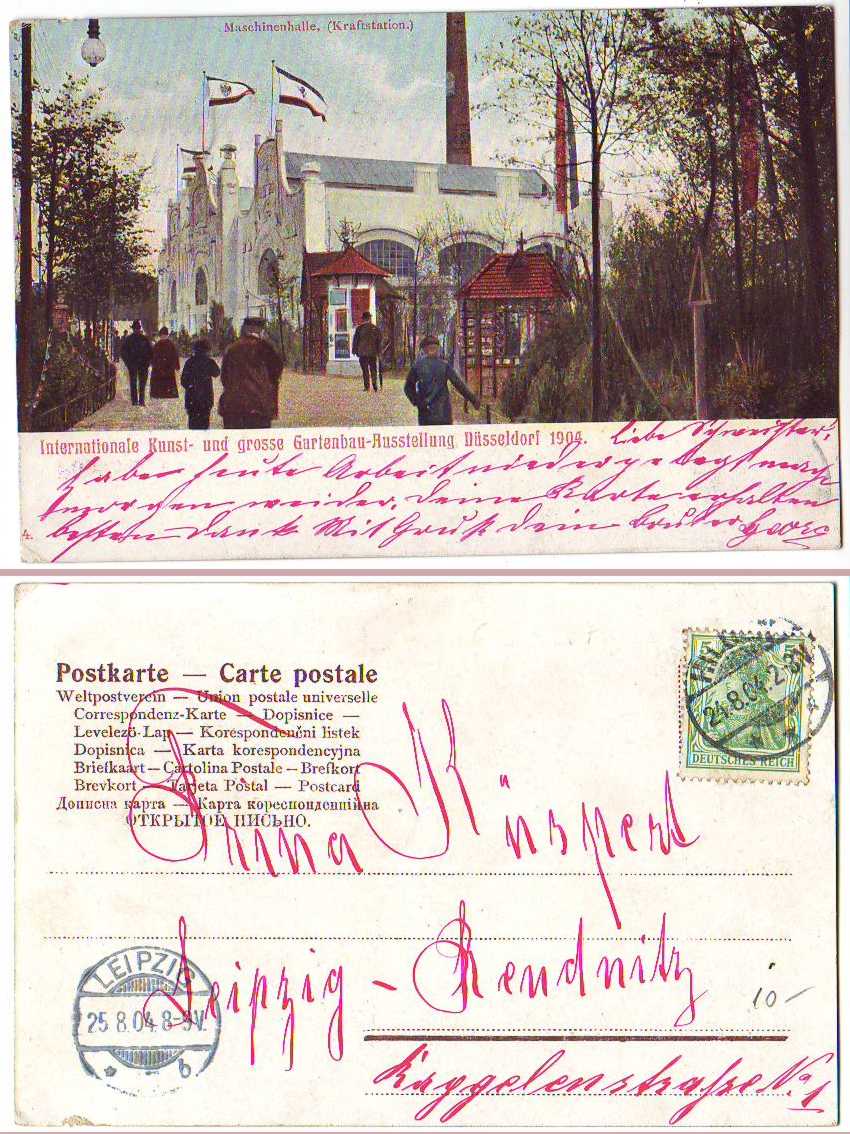 Maschinenhalle, (Kraftstation.)
Internationale Kunst- und grosse Gartenbau-Ausstellung Düsseldorf 1904. Liebe Schwester,
habe heute Arbeit niedergelegt
morgen weider, deine Karte erhalten
4. besten Dank Mit Gruß dein Bruder Georg
Postkarte — Carte postale
Weltpostverein — Union postale universelle
Correspondenz-Karte — Dopisnice —
Levelező-Lap — Korespondenčni listek
Dopisnica — Karta korespondencyjna
Briefkaart — Cartolina Postale — Brefkort
Brevkort — Tarjeta Postal — Postcard
Дописна карта — Карта кореспонденційна
ОТКРЫТОЕ ПИСЬМО.
5
24.8.04. 2-3V.
DEUTSCHES REICH
Künspert
Leipzig - Reudnitz
LEIPZIG
25.8.04 8-9V.
* b
10-
No 1